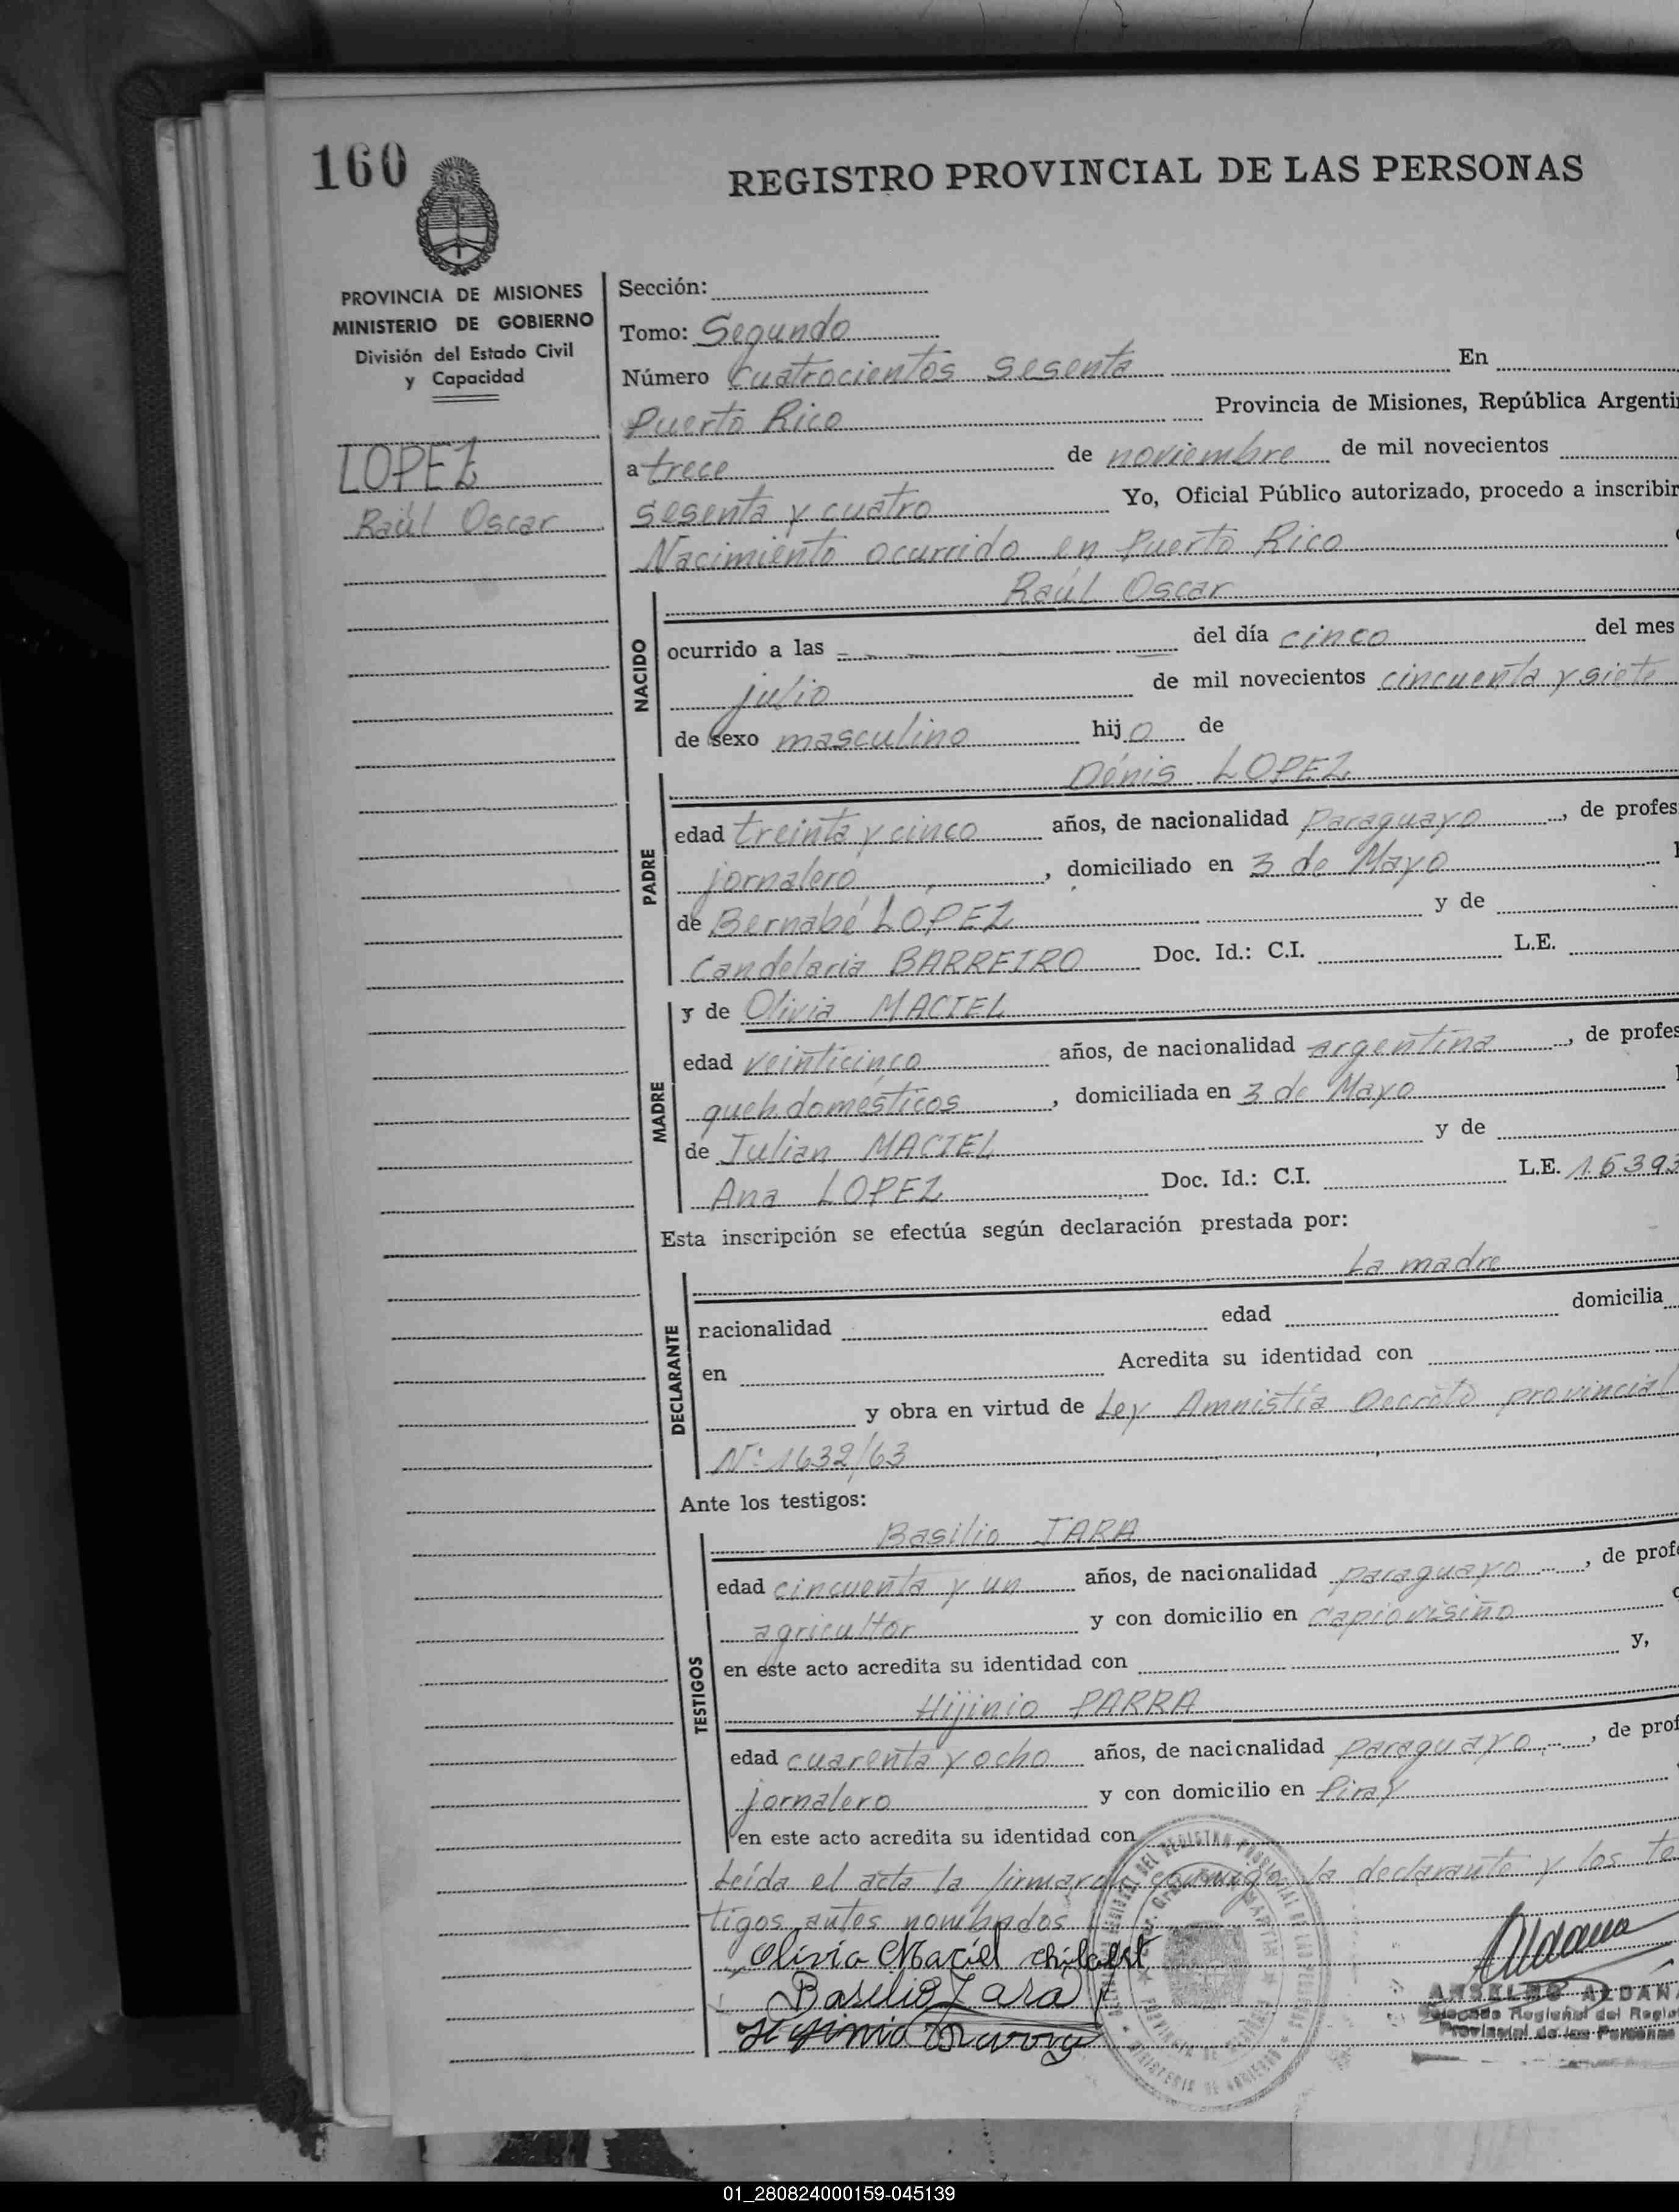 160
REGISTRO PROVINCIAL DE LAS PERSONAS
PROVINCIA DE MISIONES
MINISTERIO DE GOBIERNO
División del Estado Civil
y Capacidad
LOPEZ
Raúl Oscar
Sección:
Tomo: Segundo
Número Cuatrocientos sesenta En
Puerto Rico Provincia de Misiones, República Argenti
a trece de noviembre de mil novecientos
sesenta y cuatro Yo, Oficial Público autorizado, procedo a inscribir
Nacimiento ocurrido en Puerto Rico
Raúl Oscar
NACIDO
ocurrido a las del día cinco del mes
julio de mil novecientos cincuenta y siete
de sexo masculino hijo de
Dénis LOPEZ
PADRE
edad treinta y cinco años, de nacionalidad paraguayo, de profes
jornalero, domiciliado en 3 de Mayo
de Bernabé LÓPEZ y de
Candelaria BARREIRO Doc. Id.: C.I. L.E.
MADRE
y de Olivia MACIEL
edad veinticinco años, de nacionalidad argentina, de profes
queh. domésticos, domiciliada en 3 de Mayo
de Julian MACIEL y de
Ana LOPEZ Doc. Id.: C.I. L.E. 1.5393
Esta inscripción se efectúa según declaración prestada por:
La madre
DECLARANTE
nacionalidad edad domicilia
en Acredita su identidad con
y obra en virtud de Ley Amnistía Decreto provincial
N° 1632/63
Ante los testigos:
TESTIGOS
Basilio JARA
edad cincuenta y un años, de nacionalidad paraguayo, de prof
agricultor y con domicilio en Capiovisiño
en este acto acredita su identidad con y,
Hijinio PARRA
edad cuarenta y ocho años, de nacionalidad paraguayo, de prof
jornalero y con domicilio en Piray
en este acto acredita su identidad con
Leída el acta la firmaron conmigo, la declarante y los te
tigos antes nombrados
Olivia Maciel
Basilio Jara
Aldana
ANSELMO ALDAN
Delegado Regional del Regis
Provincial de las Personas
01_280824000159-045139